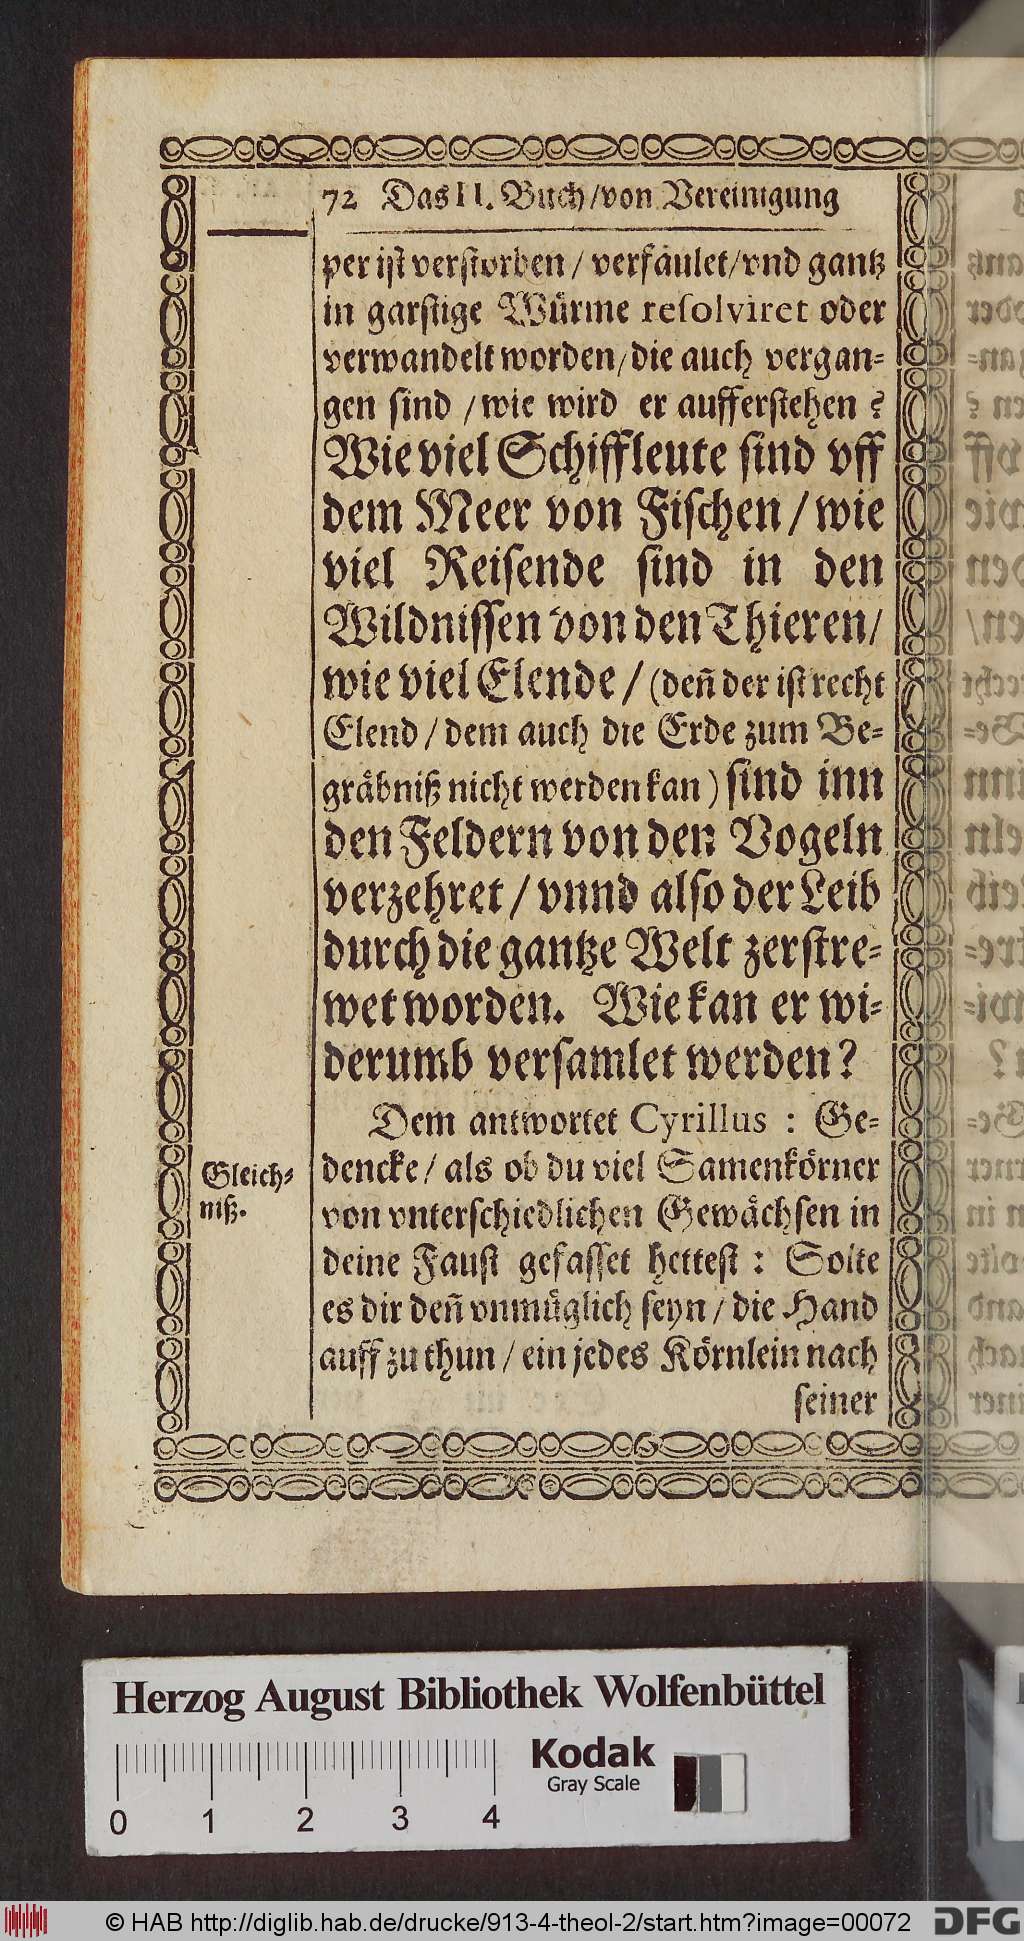 72 Das II. Buch/von Vereinigung
per ist verstorben / verfäulet/vnd gantz
in garstige Würme resolviret oder
verwandelt worden/die auch vergan-
gen sind /wie wird er aufferstehen ?
Wie viel Schiffleute sind vff
dem Meer von Fischen / wie
viel Reisende sind in den
Wildnissen von den Thieren/
wie viel Elende / (deñ der ist recht
Elend / dem auch die Erde zum Be-
gräbniß nicht werden kan) sind inn
den Feldern von den Vogeln
verzehret / vnnd also der Leib
durch die gantze Welt zerstre-
wet worden. Wie kan er wi-
derumb versamlet werden?
Dem antwortet Cyrillus : Ge-
Gleich-
niß.
dencke / als ob du viel Samenkörner
von vnterschiedlichen Gewächsen in
deine Faust gefasset hettest : Solte
es dir deñ vnmüglich seyn / die Hand
auff zu thun / ein jedes Körnlein nach
seiner
Herzog August Bibliothek Wolfenbüttel
Kodak
Gray Scale
0 1 2 3 4
© HAB http://diglib.hab.de/drucke/913-4-theol-2/start.htm?image=00072
DFG